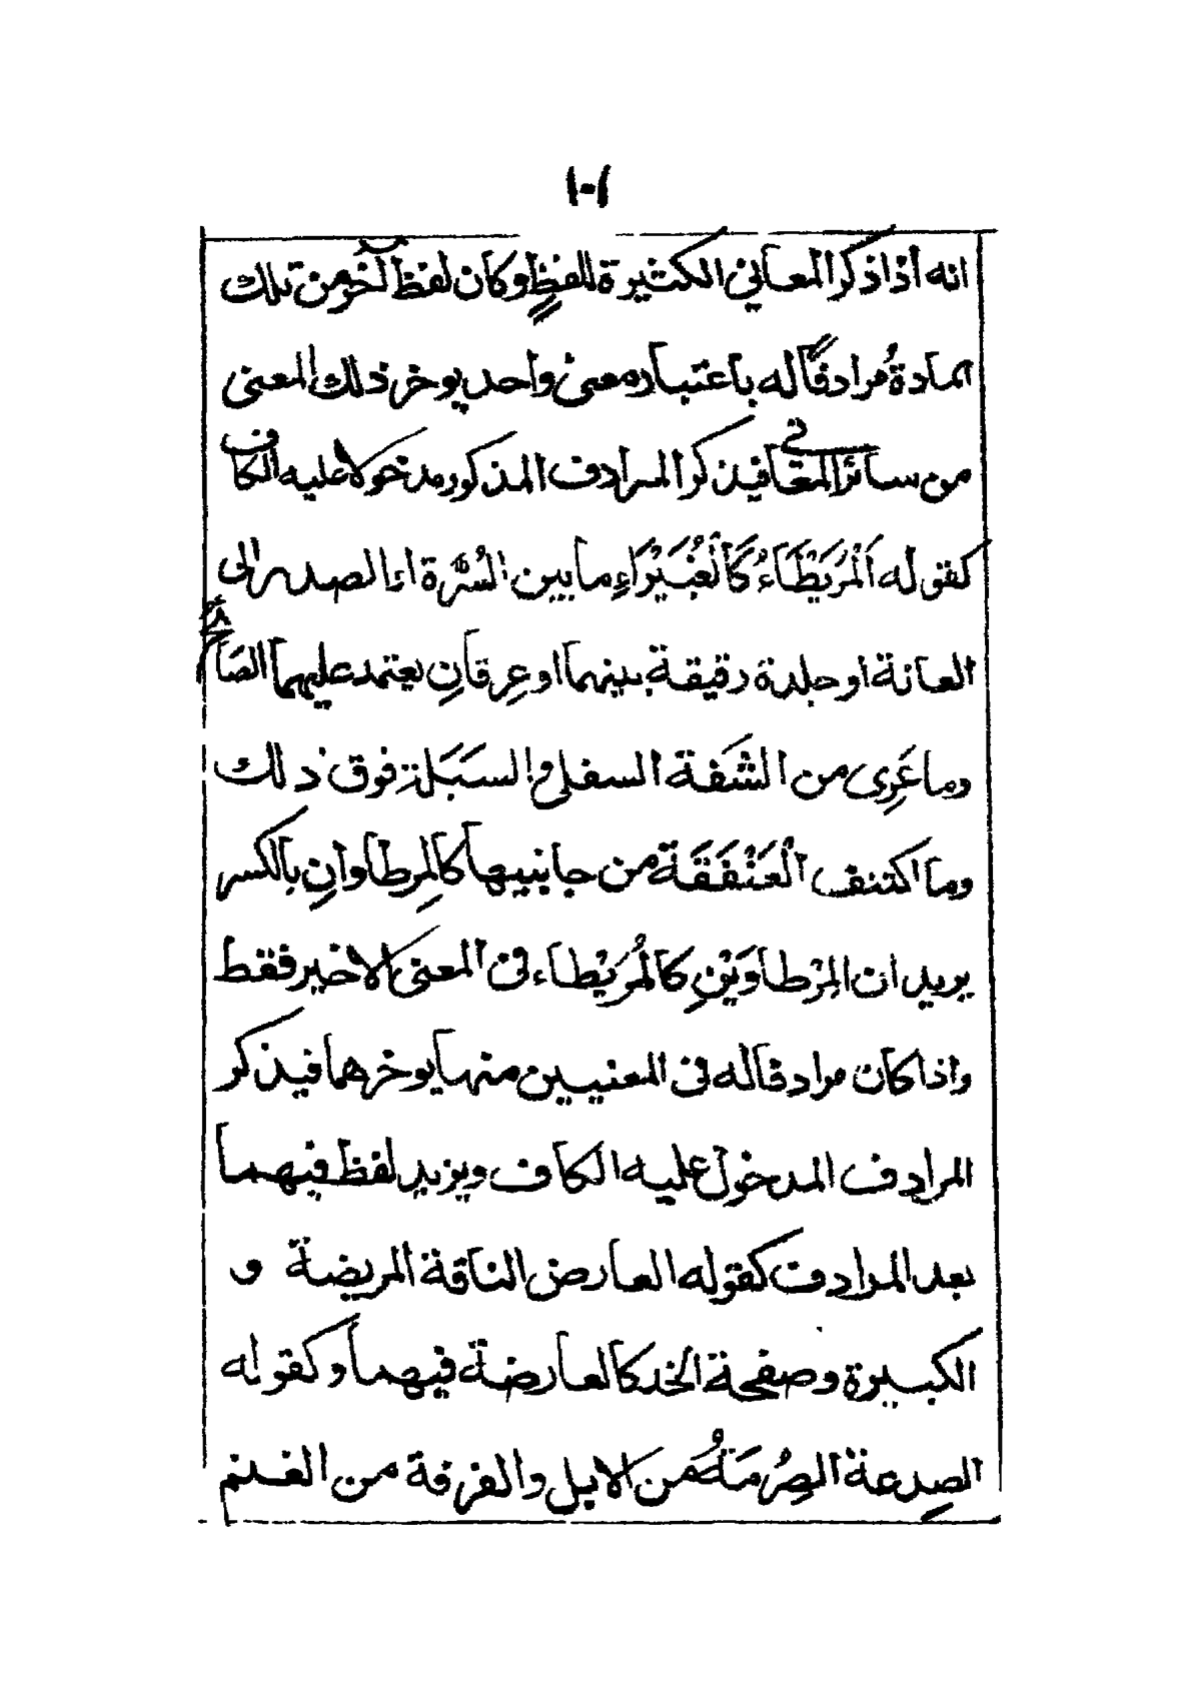 ١٠١
انه أذا ذكر المعاني الكثيرة للفظٍ وكان لفظ آخر من تلك
المادة مرادفًا له باعتبار معنى واحد يوخر ذلك المعنى
من سائر المعاني فيذكر المرادف المذكور مدخولا عليه الكاف
كقوله اَلْمُرَيْطَاءُ كَالْغُبَيْرَاءِ ما بين السُّرَّة او الصدر الى
العانة او جلدة رقيقة بينهما او عِرقانِ يعتمد عليهما الصَائح
وما عَرِى من الشَفة السفلى والسَبَلة فوق ذلك
وما اكتنف الْعَنْفَقَة من جانبيها كالمِرطاوانِ بالكسر
يريد ان المِرْطاوَيْنِ كالمُرَيْطاء فى المعنى الاخير فقط
واذا كان مرادفا له فى المعنيين منها يوخرهما فيذكر
المرادف المدخول عليه الكاف ويزيد لفظ فيهما
بعد المرادف كقوله العارض الناقة المريضة و
الكبيرة وصفحة الخد كالعارضة فيهما وكقوله
الصِدعة الصِرُمَةُ من الابل والفرقة من الغنم